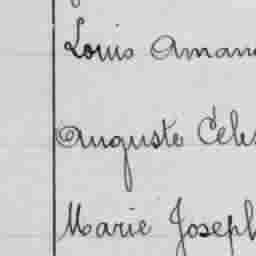 Louis Aman
Auguste Céles
Marie Joseph